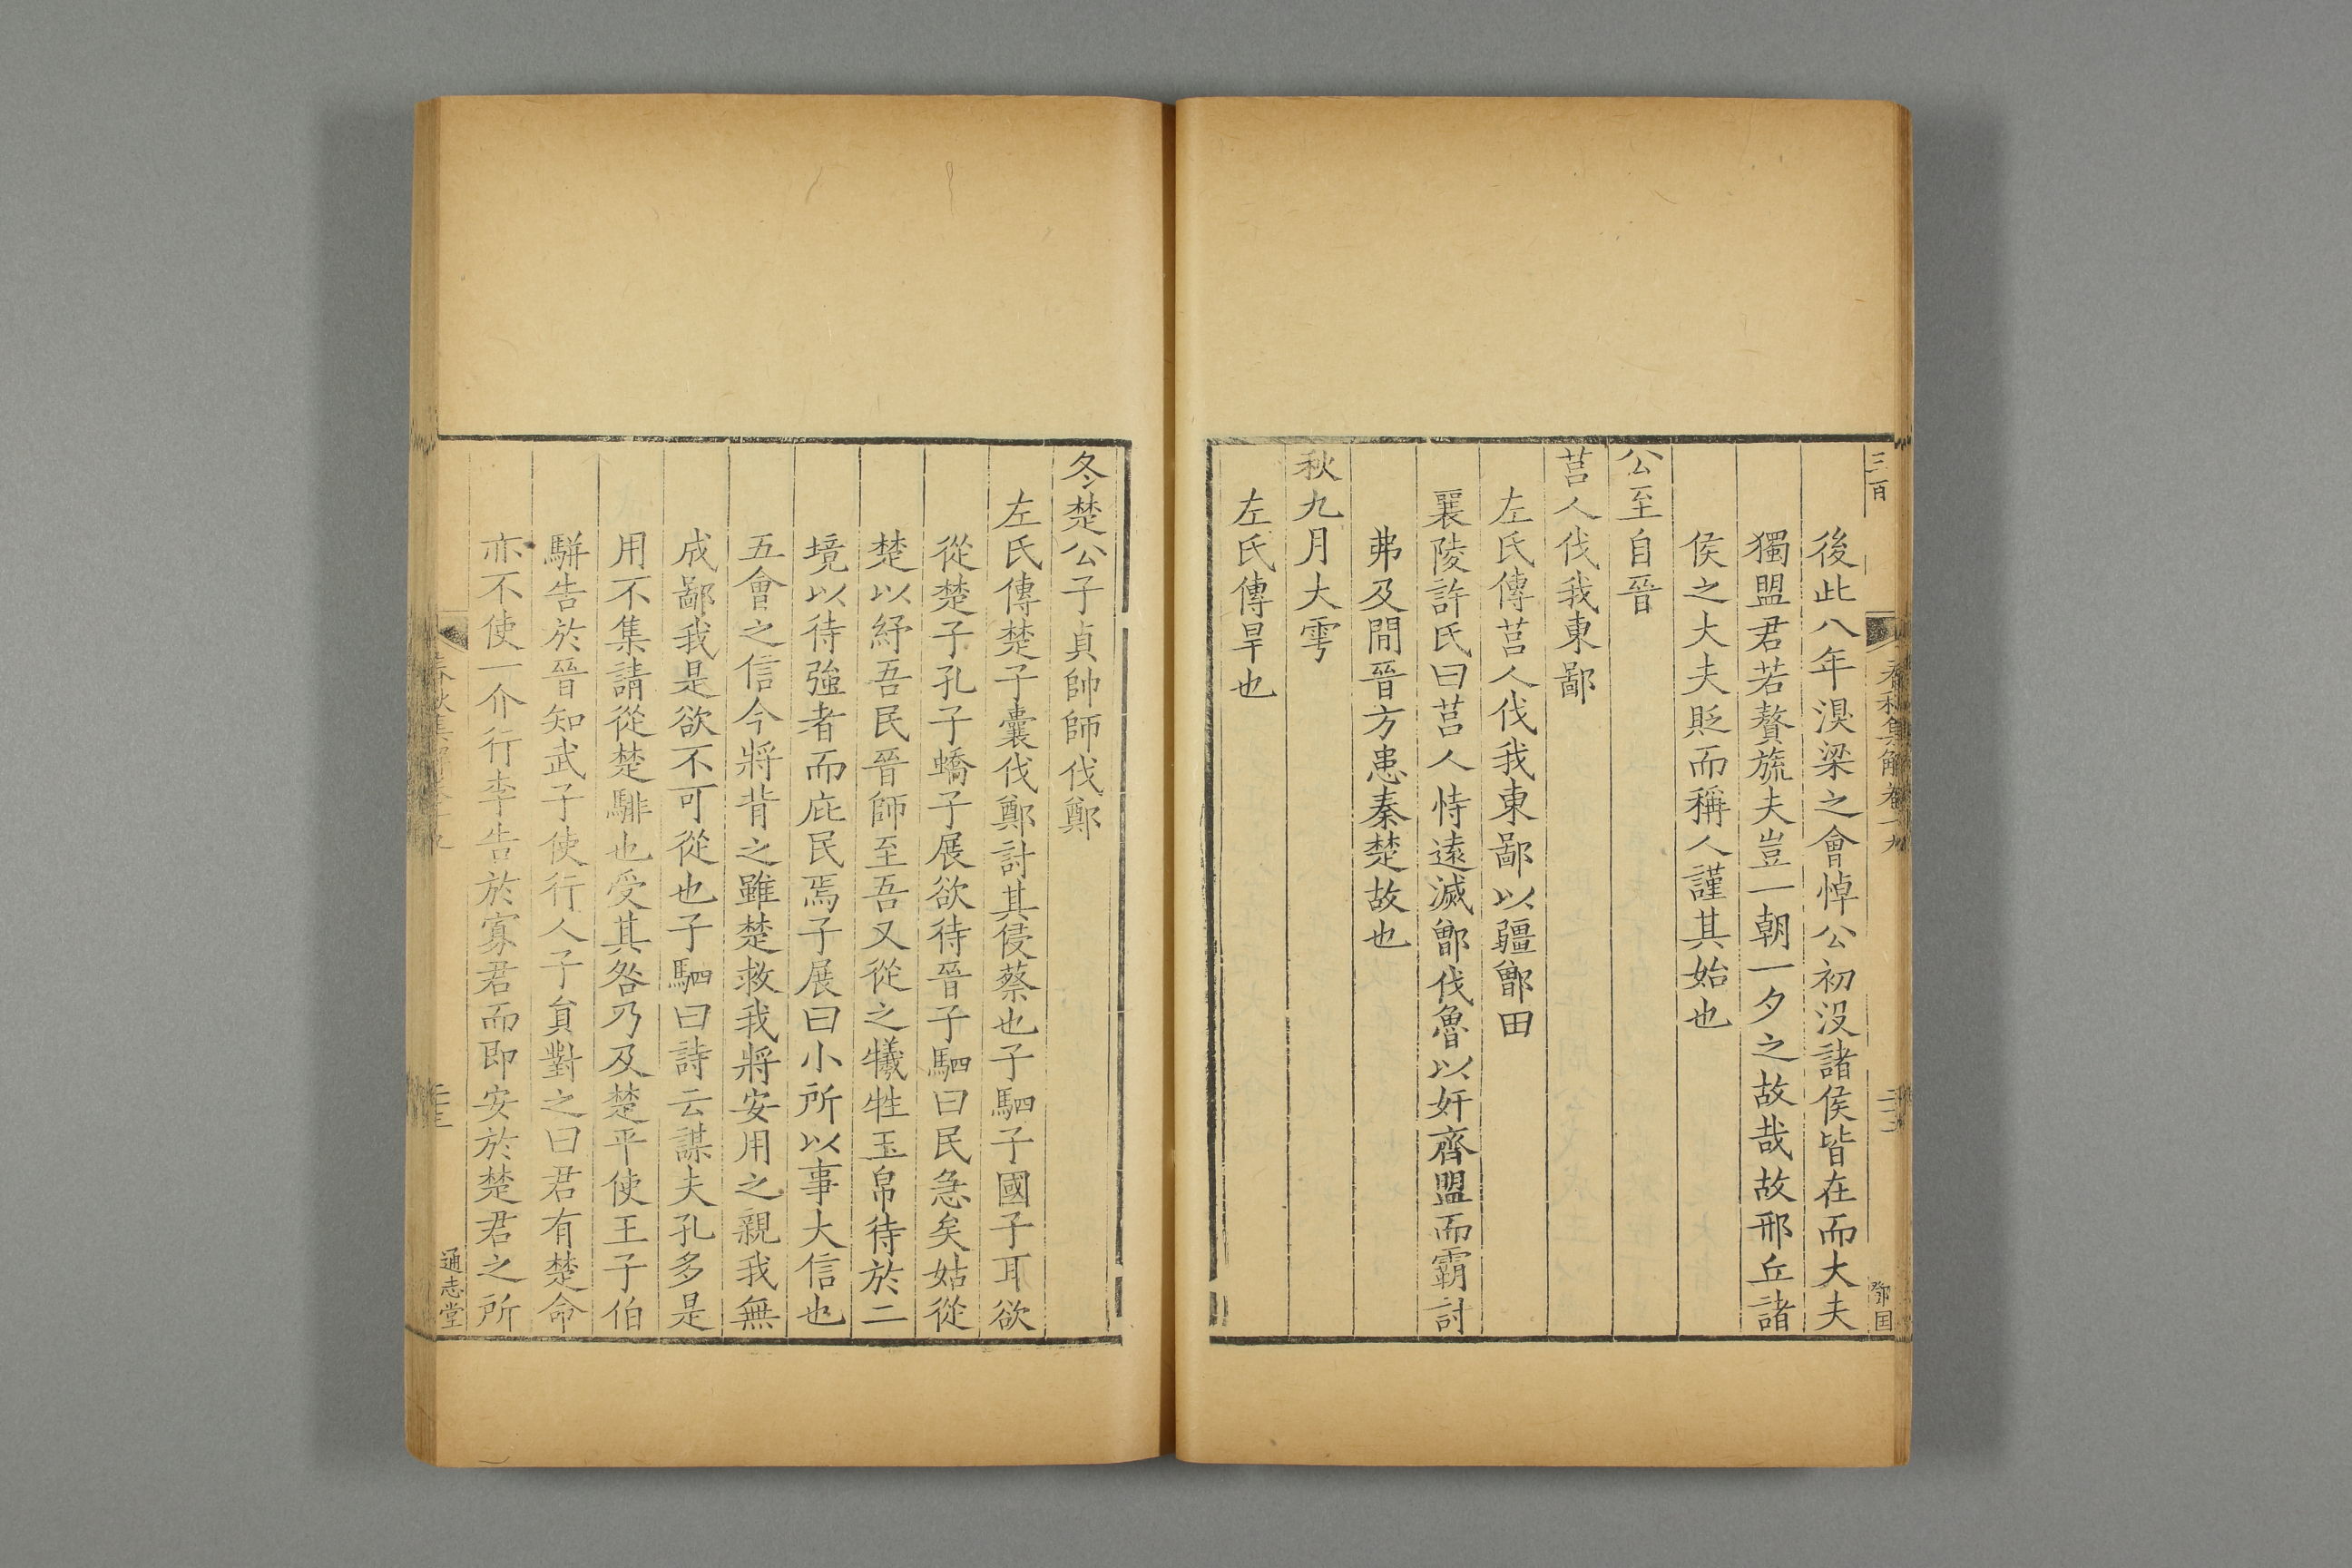 三百
後此八年湨梁之會悼公初没諸侯皆在而大夫
獨盟君若贅旒夫豈一朝一夕之故哉故邢丘諸
侯之大夫貶而稱人謹其始也
公至自晉
莒人伐我東鄙
左氏傳莒人伐我東鄙以疆鄫田
襄陵許氏曰莒人恃遠滅鄫伐魯以奸齊盟而霸討
弗及間晉方患秦楚故也
秋九月大雩
左氏傳旱也
冬楚公子貞帥師伐鄭
左氏傳楚子囊伐鄭討其侵蔡也子駟子國子耳欲
從楚子孔子蟜子展欲待晉子駟曰民急矣姑從
楚以紓吾民晉師至吾又從之犧牲玉帛待於二
境以待強者而庇民焉子展曰小所以事大信也
五會之信今將背之雖楚救我將安用之親我無
成鄙我是欲不可從也子駟曰詩云謀夫孔多是
用不集請從楚騑也受其咎乃及楚平使王子伯
駢告於晉知武子使行人子員對之曰君有楚命
亦不使一介行李告於寡君而即安於楚君之所
通志堂